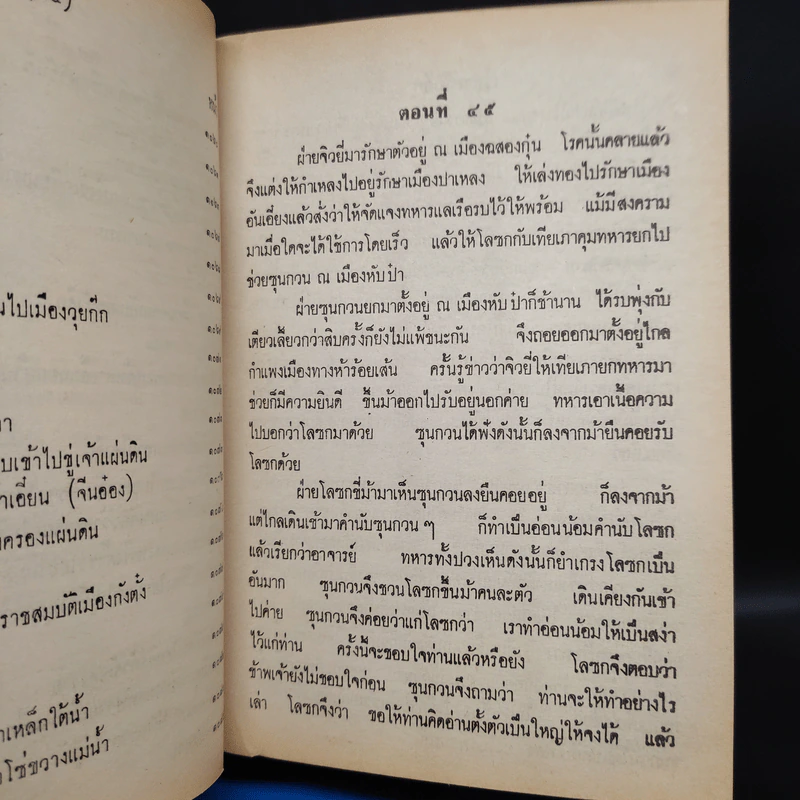 นไปเมืองวุยก๊ก
บเข้าไปขู่เจ้าแผ่นดิน
าเอี๋ยน (จีนอ๋อง)
งครองแผ่นดิน
ราชสมบัติเมืองกังตั๋ง
าเหล็กใต้น้ำ
โซ่ขวางแม่น้ำ
ตอนที่ ๔๕
ฝ่ายจิวยี่มารักษาตัวอยู่ ณ เมืองฉสองกุ๋น โรคนั้นคลายแล้ว
จึงแต่งให้กำเหลงไปอยู่รักษาเมืองปาเหลง ให้เล่งทองไปรักษาเมือง
ฮันเอี๋ยงแล้วสั่งว่าให้จัดแจงทหารแลเรือรบไว้ให้พร้อม แม้มีสงคราม
มาเมื่อใดจะได้ใช้การโดยเร็ว แล้วให้โลซกกับเทียเภาคุมทหารยกไป
ช่วยซุนกวน ณ เมืองหับป๋า
ฝ่ายซุนกวนยกมาตั้งอยู่ ณ เมืองหับป๋าก็ช้านาน ได้รบพุ่งกับ
เตียวเลี้ยวกว่าสิบครั้งก็ยังไม่แพ้ชนะกัน จึงถอยออกมาตั้งอยู่ไกล
กำแพงเมืองทางห้าร้อยเส้น ครั้นรู้ข่าวว่าจิวยี่ให้เทียเภายกทหารมา
ช่วยก็มีความยินดี ขึ้นม้าออกไปรับอยู่นอกค่าย ทหารเอาเนื้อความ
ไปบอกว่าโลซกมาด้วย ซุนกวนได้ฟังดังนั้นก็ลงจากม้ายืนคอยรับ
โลซกด้วย
ฝ่ายโลซกขี่ม้ามาเห็นซุนกวนลงยืนคอยอยู่ ก็ลงจากม้า
แต่ไกลเดินเข้ามาคำนับซุนกวน ๆ ก็ทำเป็นอ่อนน้อมคำนับโลซก
แล้วเรียกว่าอาจารย์ ทหารทั้งปวงเห็นดังนั้นก็ยำเกรงโลซกเป็น
อันมาก ซุนกวนจึงชวนโลซกขึ้นม้าคนละตัว เดินเคียงกันเข้า
ไปค่าย ซุนกวนจึงค่อยว่าแก่โลซกว่า เราทำอ่อนน้อมให้เป็นสง่า
ไว้แก่ท่าน ครั้งนี้จะชอบใจท่านแล้วหรือยัง โลซกจึงตอบว่า
ข้าพเจ้ายังไม่ชอบใจก่อน ซุนกวนจึงถามว่า ท่านจะให้ทำอย่างไร
เล่า โลซกจึงว่า ขอให้ท่านคิดอ่านตั้งตัวเป็นใหญ่ให้จงได้ แล้ว